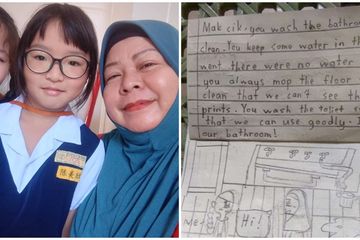 Mak cik, you wash the bathroo
clean. You keep some water in th
went there were no water
you always mop the floor
clean that we can't see th
prints. You wash the toilet
that we can use goodly. I
our bathroom!
Me
Hi!